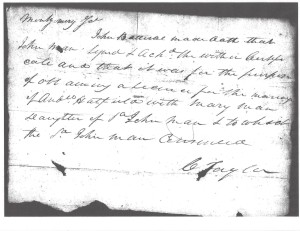 Montgomery
John made oath that
John Man Signd & Ackd. the within Certifi
cate and that it was for the purpose
of obtaining a licence for the marriage
of with Mary Man
daughter of sd. John Man & to which
the sd. John Man Consented
C Taylor